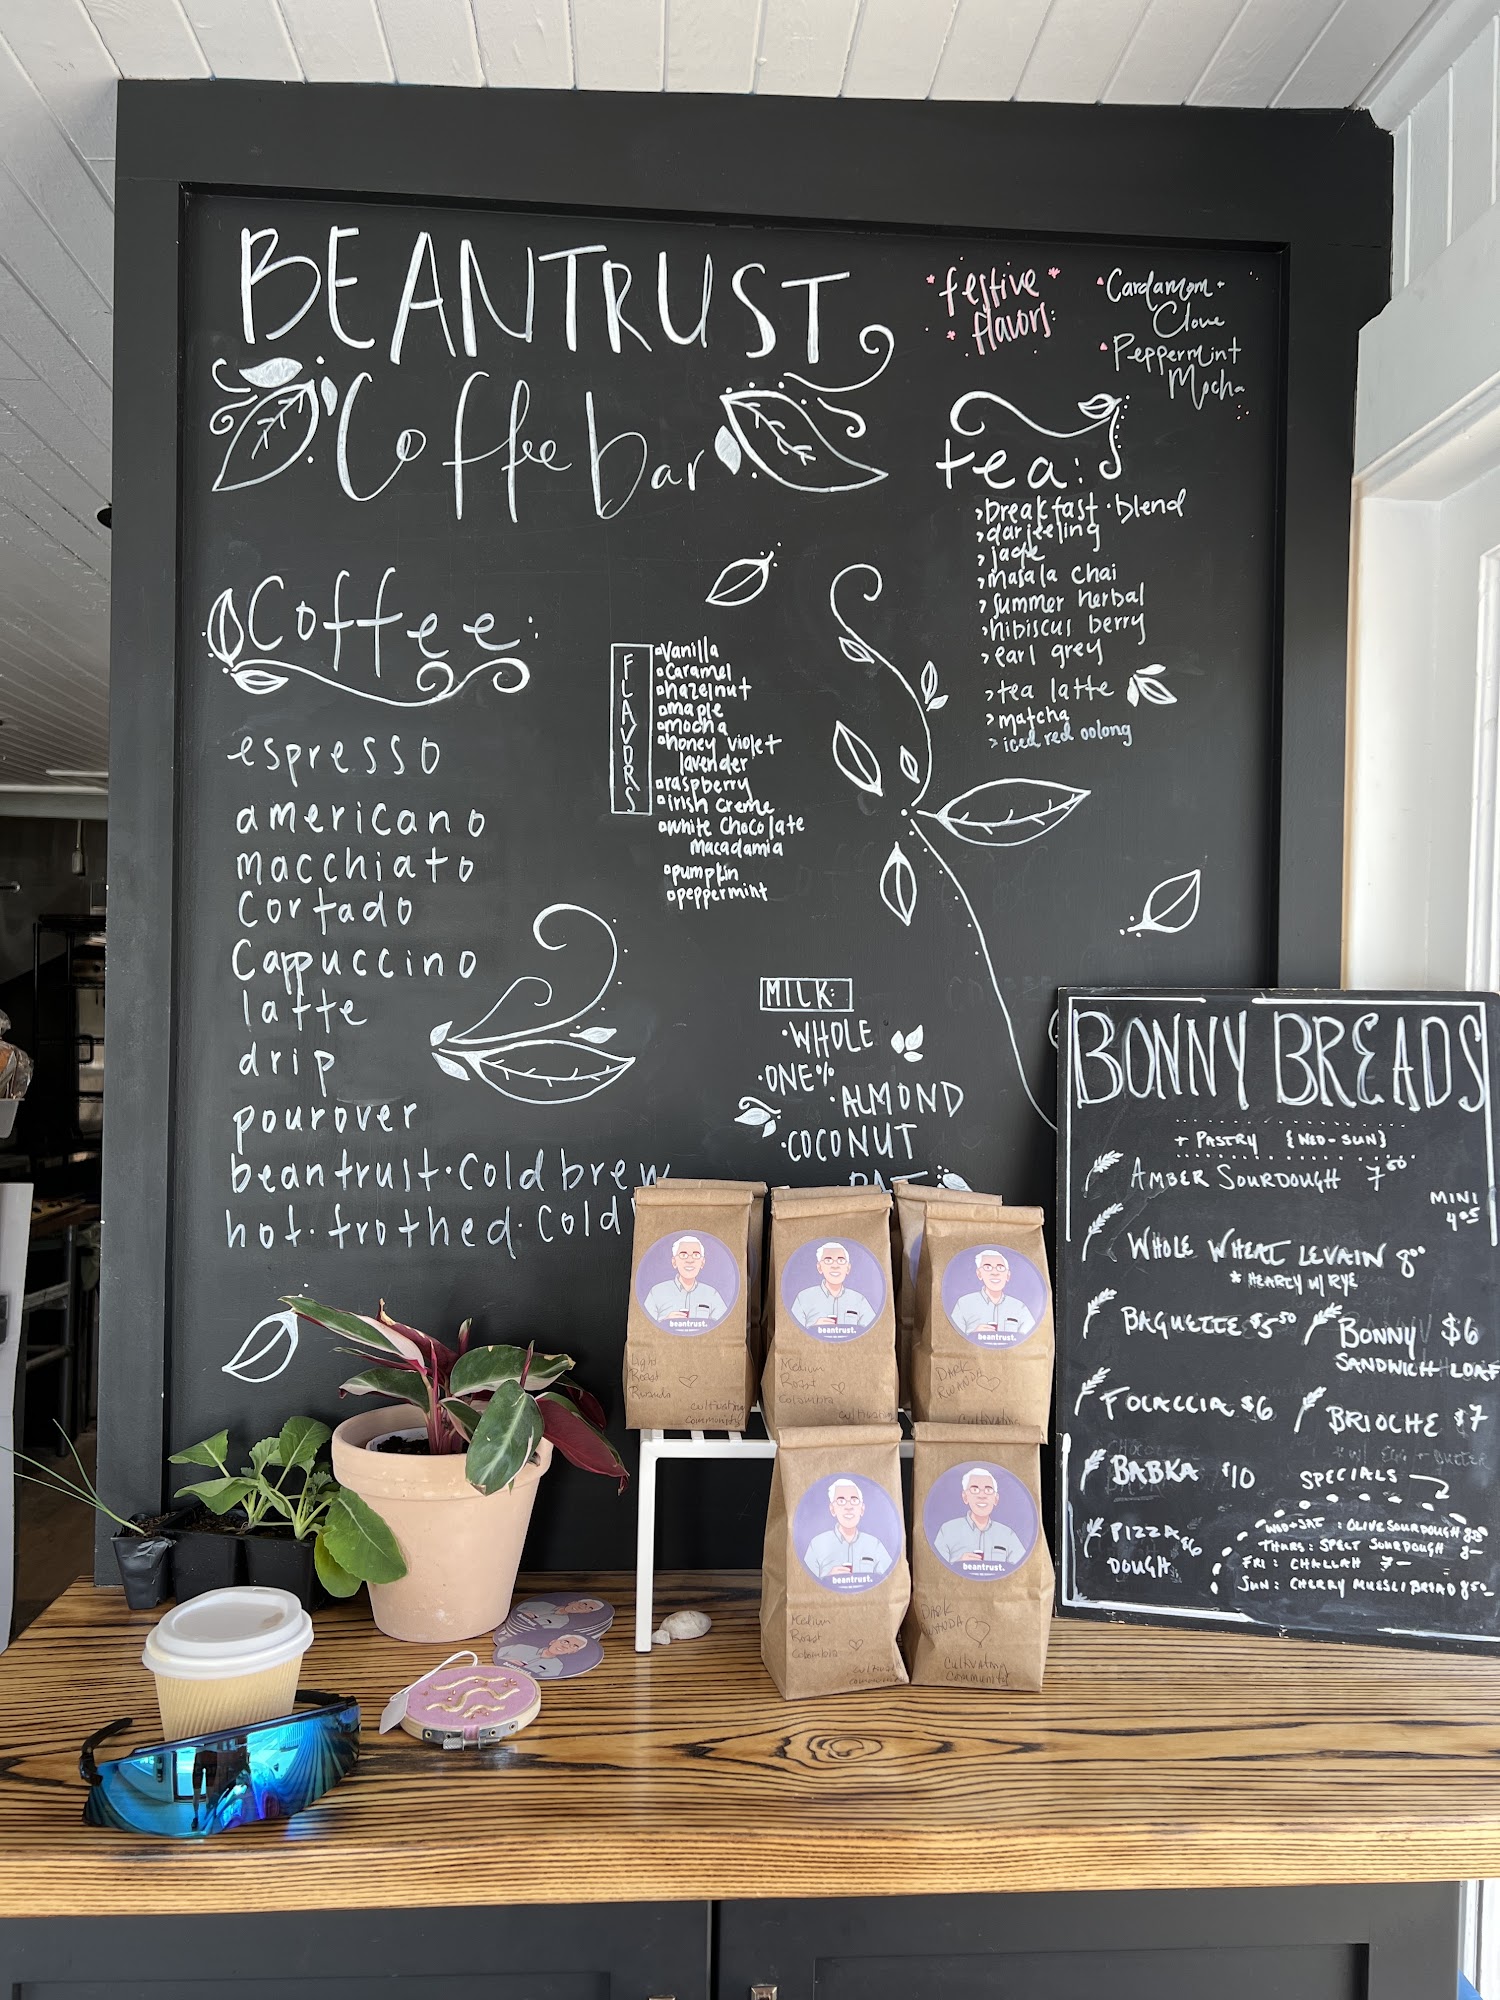 BEANTRUST
Coffee bar
*festive*
*flavors:
Cardamom
Clove
Peppermint
Mocha
tea:
>breakfast·blend
>darjeeling
>jade
>masala chai
>summer herbal
>hibiscus berry
>earl grey
>tea latte
>matcha
>iced red oolong
Coffee:
espresso
americano
macchiato
Cortado
Cappuccino
latte
drip
pourover
beantrust·cold brew
hot·frothed·cold
FLAVORS
Vanilla
Caramel
hazelnut
maple
mocha
honey violet
lavender
raspberry
irish creme
white chocolate
Macadamia
pumpkin
peppermint
MILK:
·WHOLE
·ONE%
·ALMOND
·COCONUT
OAT
BONNY BREADS
+ PASTRY {WED-SUN}
AMBER SOURDOUGH 7⁵⁰
MINI
4⁰⁵
WHOLE WHEAT LEVAIN 8⁰⁰
* HEARTY W/ RYE
BAGUETTE $5⁵⁰
BONNY $6
SANDWICH LOAF
FOCACCIA $6
BRIOCHE $7
BABKA $10
PIZZA $6
DOUGH
SPECIALS
WED+SAT: OLIVE SOURDOUGH 8⁵⁰
THURS: SPELT SOURDOUGH 8-
FRI: CHALLAH 7-
SUN: CHERRY MUESLI BREAD 8⁵⁰
beantrust.
Light
Roast
Rwanda
cultivating
community
beantrust.
Medium
Roast
Colombia
cultivating
beantrust.
DARK
RWANDA
cultivating
beantrust.
Medium
Roast
Colombia
cultivating
community
beantrust.
DARK
RWANDA
Cultivating
Community